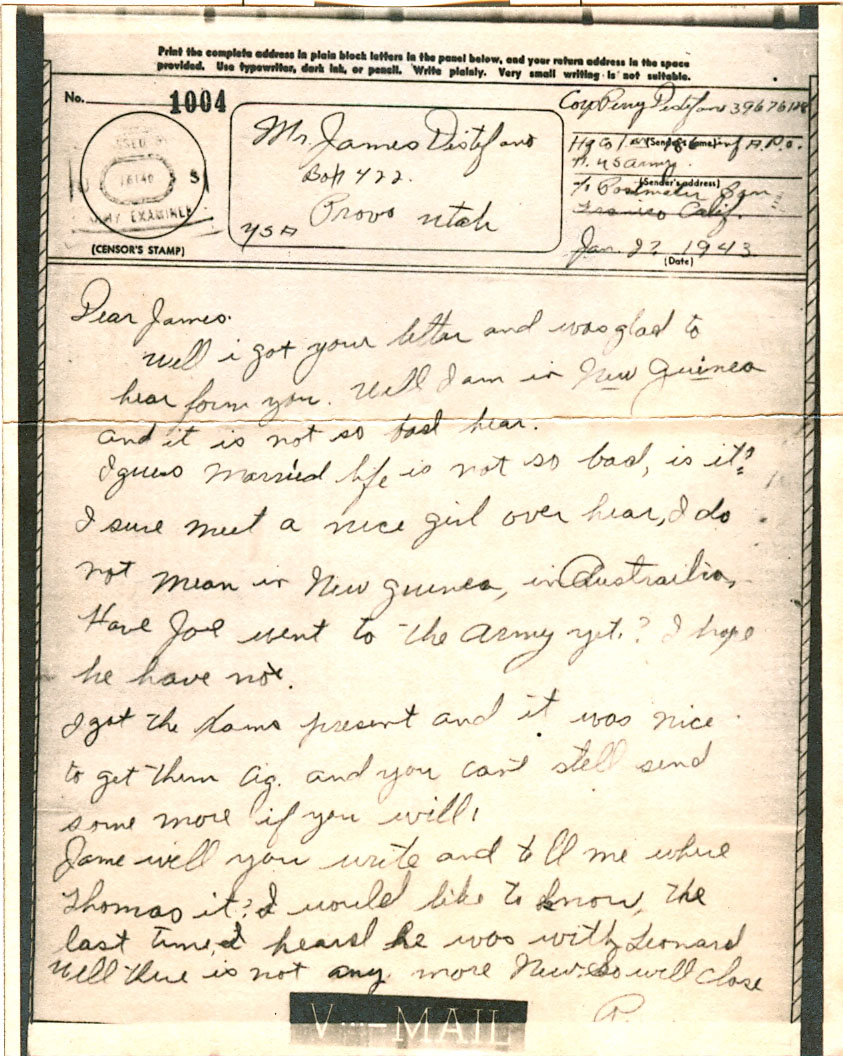 Print the complete address in plain block letters in the panel below, and your return address in the space
provided. Use typewriter, dark ink, or pencil. Write plainly. Very small writing is not suitable.
No. 1004
ARMY EXAMINER
(CENSOR'S STAMP)
Mr. James Distefano
Box 422.
Provo utah
USA
Corp Perry Distefano
(Sender's name)
A.P.O.
US Army.
(Sender's address)
Postmaster San
Calif.
Jan. 27 1943
(Date)
Dear James.
Well i got your letter and was glad to
hear form you. Well I am in New Guinea
and it is not so bad hear.
I guess married life is not so bad, is it?
I sure meet a nice girl over hear, I do
not mean in New guinea, in Austrailia,
Have Joe went to the Army yet? I hope
he have not.
I got the present and it was nice
to get them and you can stell send
some more if you will!
Jame will you write and tell me where
Thomas it? I would like to know, the
last time I heard he was with Leonard
Well there is not any more News So will close
P.
V···—MAIL